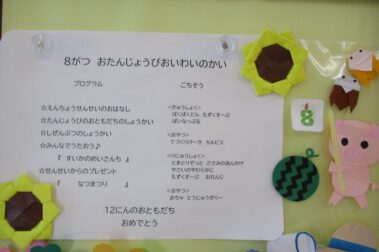 8がつ おたんじょうびおいわいのかい
プログラム
ごちそう
☆えんちょうせんせいのおはなし
☆たんじょうびのおともだちのしょうかい
☆しぜんぶつのしょうかい
☆みんなでうたおう♪
『 すいかのめいさんち 』
☆せんせいからのプレゼント
『 なつまつり 』
<きゅうしょく>
ぱくぱくどん もずくすーぷ
ぱいなっぷる
<おやつ>
てづくりけーき カルピス
<りにゅうしょく>
とまとりぞっと ささみのあんかけ
やさいのやわらかに
もずくすーぷ おれんじ
<おやつ>
おちゃ とうにゅうぜりー
12にんのおともだち
おめでとう
8